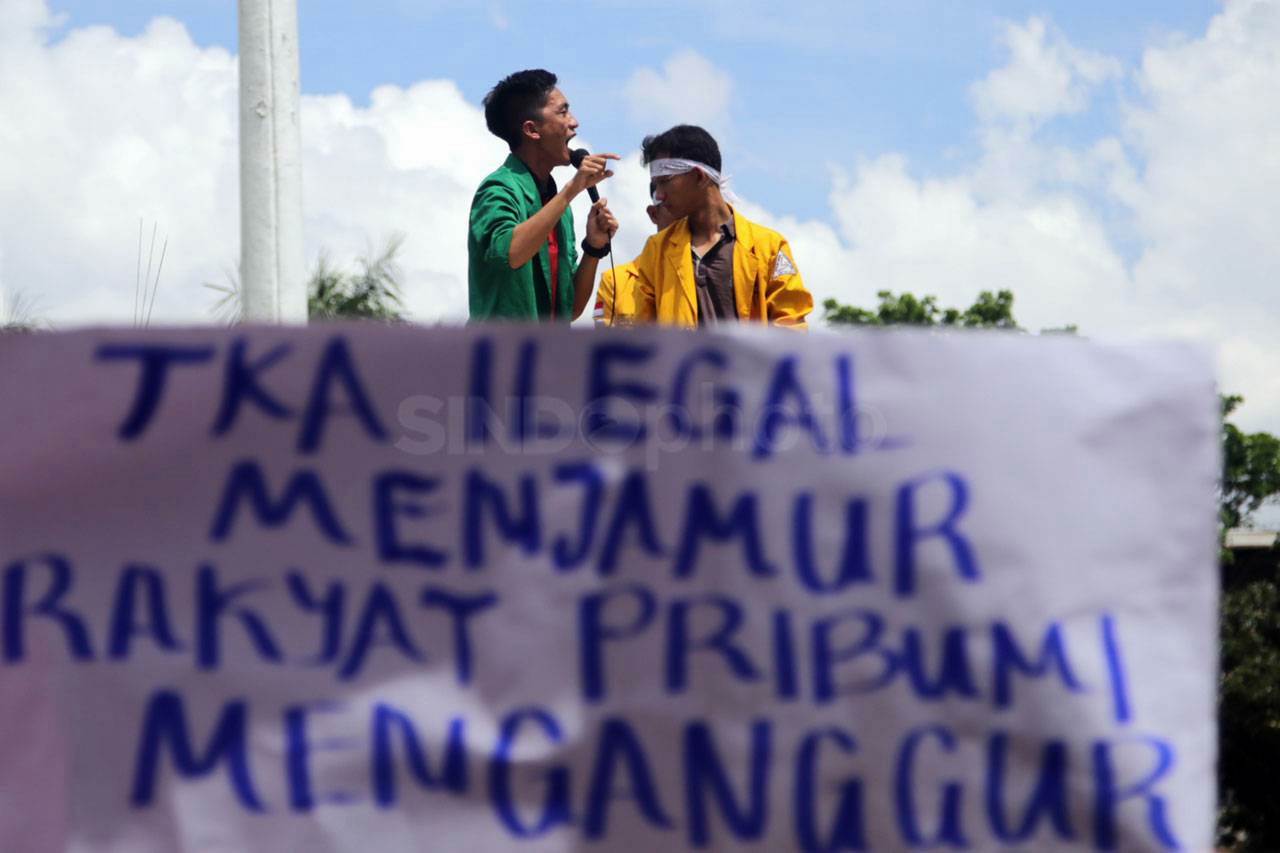 TKA ILEGAL
MENJAMUR
RAKYAT PRIBUMI
MENGANGGUR
SINDOphoto